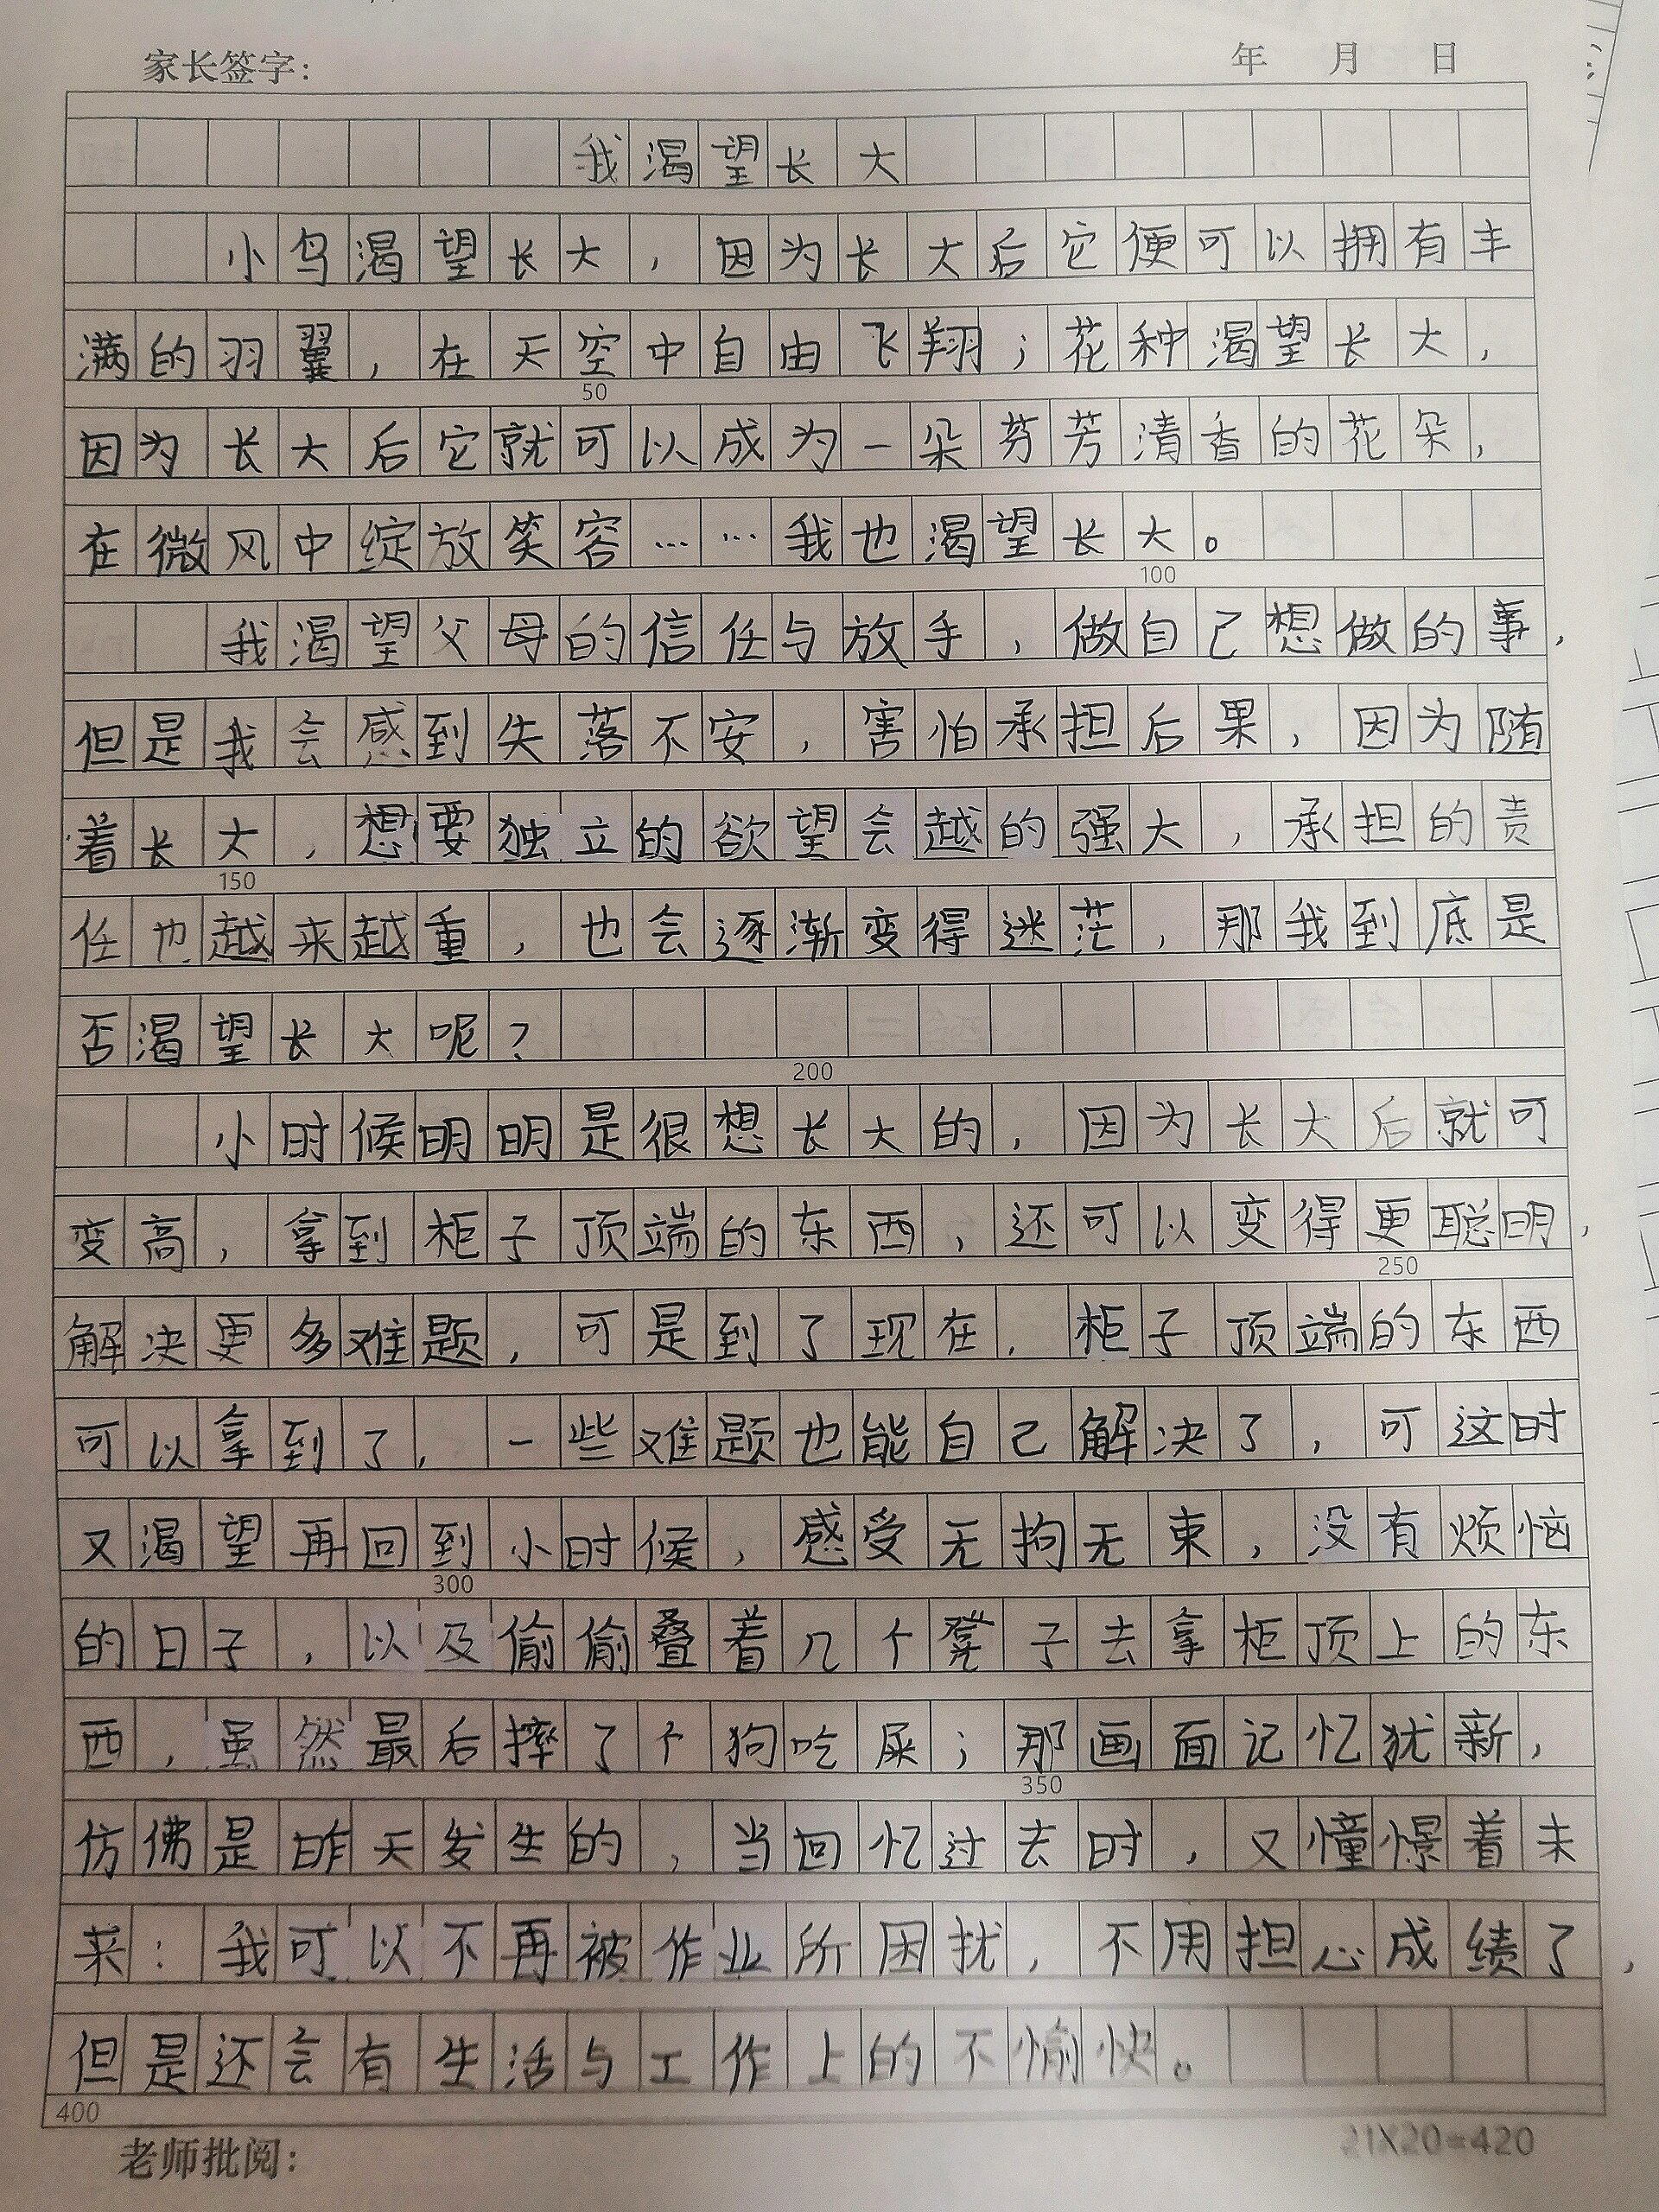 家长签字： 年 月 日
我渴望长大
小鸟渴望长大，因为长大后它便可以拥有丰
满的羽翼，在天空中自由飞翔；花种渴望长大，
50
因为长大后它就可以成为一朵芬芳清香的花朵，
在微风中绽放笑容……我也渴望长大。
100
我渴望父母的信任与放手，做自己想做的事，
但是我会感到失落不安，害怕承担后果，因为随
着长大，想要独立的欲望会越的强大，承担的责
150
任也越来越重，也会逐渐变得迷茫，那我到底是
否渴望长大呢？
200
小时候明明是很想长大的，因为长大后就可
变高，拿到柜子顶端的东西，还可以变得更聪明，
250
解决更多难题，可是到了现在，柜子顶端的东西
可以拿到了，一些难题也能自己解决了，可这时
又渴望再回到小时候，感受无拘无束，没有烦恼
300
的日子，以及偷偷叠着几个凳子去拿柜顶上的东
西，虽然最后摔了个狗吃屎；那画面记忆犹新，
350
仿佛是昨天发生的，当回忆过去时，又憧憬着未
来：我可以不再被作业所困扰，不用担心成绩了，
但是还会有生活与工作上的不愉快。
400
老师批阅： 21X20=420